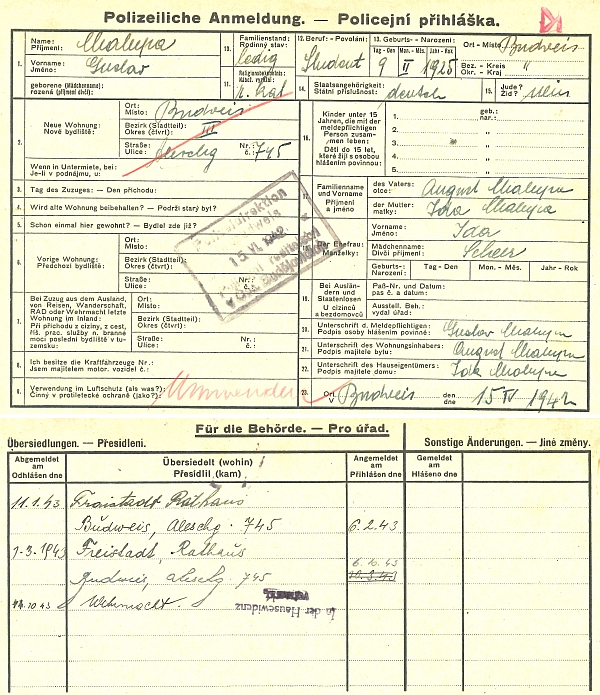 Polizeiliche Anmeldung. — Policejní přihláška.
1. Name: Příjmení: Chalupa
Vorname: Jméno: Gustav
geborene (Mädchenname) rozená (příjmení dívčí):
10. Familienstand: Rodinný stav: ledig
11. Religionsbekenntnis: Nábož. vyznání: r. kat
12. Beruf: - Povolání: Student
13. Geburts- - Narození:
Tag - Den Mon. - Měs. Jahr - Rok
9 II 1925
Ort - Místo: Budweis
Bez. - Kreis Okr. - Kraj "
14. Staatsangehörigkeit: Státní příslušnost: deutsch
15. Jude? Žid? nein
2. Neue Wohnung: Nové bydliště:
Ort: Místo: Budweis
Bezirk (Stadtteil): Okres (čtvrť): III
Straße: Ulice: Aleschg Nr.: č.: 745
Wenn in Untermiete, bei: Je-li v podnájmu, u:
16. Kinder unter 15 Jahren, die mit der meldepflichtigen Person zusammen leben: Děti do 15 let, které žijí s osobou hlášením povinnou:
geb.: nar.:
1.
2. "
3. "
4. "
5. "
3. Tag des Zuzuges: — Den příchodu:
4. Wird alte Wohnung beibehalten? — Podrží starý byt?
5. Schon einmal hier gewohnt? — Bydlel zde již?
6. Vorige Wohnung: Předchozí bydliště:
Ort: Místo:
Bezirk (Stadtteil): Okres (čtvrť):
Straße: Ulice: Nr.: č.:
17. Familienname und Vorname Příjmení a jméno
des Vaters: otce: August Chalupa
der Mutter: matky: Ida Chalupa
18. Der Ehefrau: Manželky:
Vorname: Jméno: Ida
Mädchenname: Dívčí příjmení: Scheer
Geburts-: Narození: Tag - Den Mon. - Měs. Jahr - Rok
7. Bei Zuzug aus dem Ausland, von Reisen, Wanderschaft, RAD oder Wehrmacht letzte Wohnung im Inland:
Při příchodu z ciziny, z cest, říš. prac. služby n. branné moci poslední bydliště v tuzemsku:
Ort: Místo:
Bezirk (Stadtteil): Okres (čtvrť):
Straße: Ulice: Nr.: č.:
19. Bei Ausländern und Staatenlosen U cizinců a bezdomovců
Paß-Nr. und Datum: pas č. a datum:
Ausstell. Beh.: vydal úřad:
20. Unterschrift d. Meldepflichtigen: Podpis osoby hlášením povinné: Gustav Chalupa
21. Unterschrift des Wohnungsinhabers: Podpis majitele bytu: August Chalupa
22. Unterschrift des Hauseigentümers: Podpis majitele domu: Ida Chalupa
8. Ich besitze die Kraftfahrzeuge Nr.: Jsem majitelem motor. vozidel č.:
9. Verwendung im Luftschutz (als was?): Činný v protiletecké ochraně (jako?):
23. Ort V Budweis den dne 15 IV 1942
15. VI. 1942
Für die Behörde. — Pro úřad.
Übersiedlungen. — Přesídlení.
Sonstige Änderungen. — Jiné změny.
Abgemeldet am Odhlášen dne
Übersiedelt (wohin) Přesídlil (kam)
Angemeldet am Přihlášen dne
Gemeldet am Hlášeno dne
11.1.43 Freistadt Rathaus
Budweis, Aleschg. 745 6.2.43
1-3.1943 Freistadt, Rathaus
Budweis, Aleschg 745 6.10.43
10.43 Wehrmacht.
In der Hausevidenz